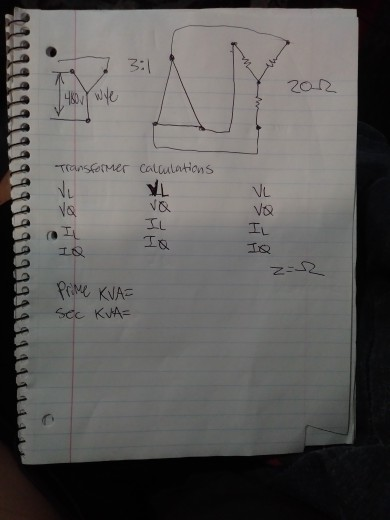 3:1
480V wye
20Ω
Transformer calculations
VL VL VL
VQ VQ VQ
IL IL IL
IQ IQ IQ
Z=Ω
Prime KVA=
Sec KVA=